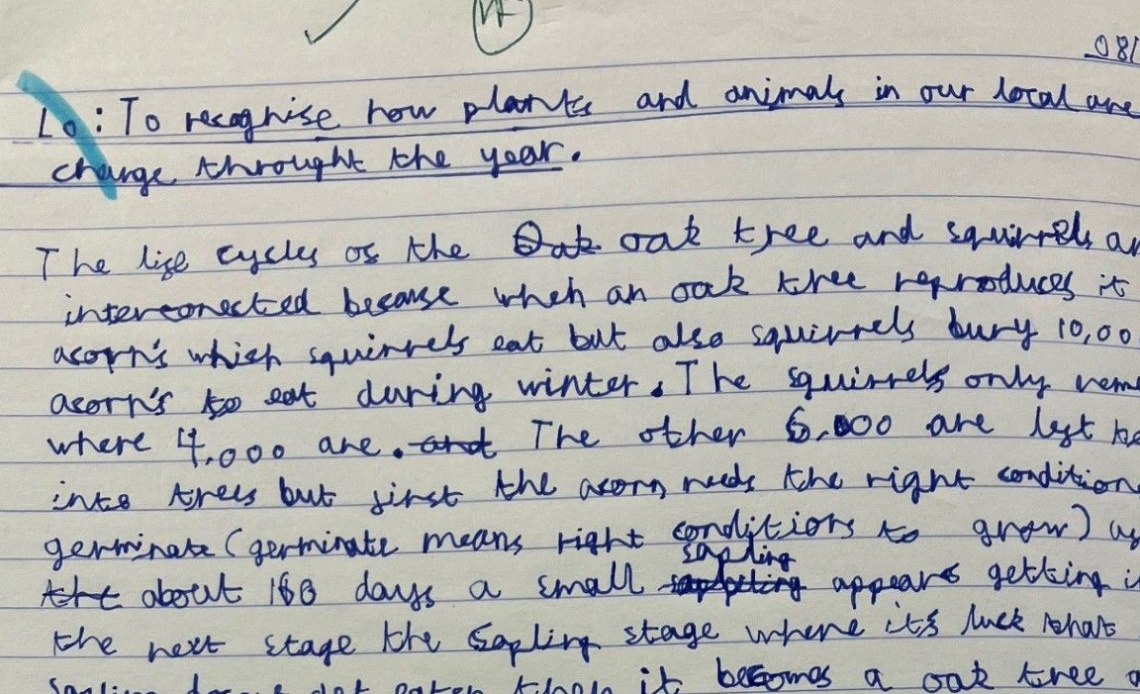 08/
Lo: To recognise how plants and animals in our local are
change throught the year.
The life cycles of the Oak oak tree and squirrels ar
interconected because when an oak tree reproduces it
acorn's which squirrels eat but also squirrels bury 10,00
acorn's to eat during winter. The squirrels only reme
where 4,000 are. and The other 6,000 are left
into trees but first the acorn needs the right condition
germinate (germinate means right conditions to grow)
sapling
about days a small appears getting
the next stage the Sapling stage where it's luck that
it becomes a oak tree